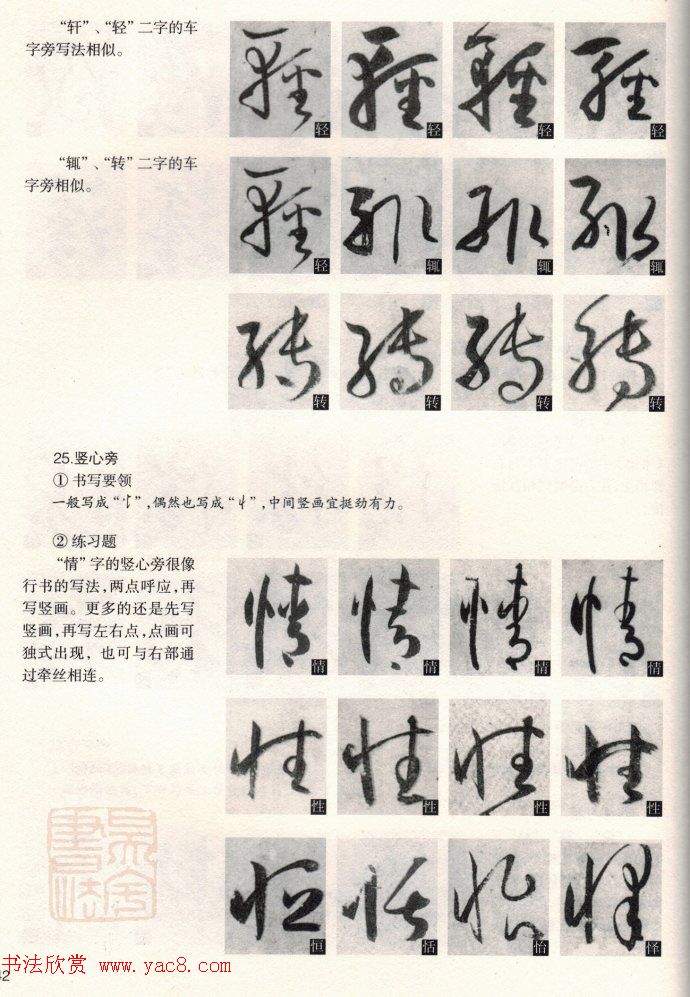 “轩”、“轻”二字的车
字旁写法相似。
轻 轻 轻 轻
“辄”、“转”二字的车
字旁相似。
轻 辄 辄 辄
转 转 转 转
25.竖心旁
① 书写要领
一般写成“忄”,偶然也写成“”,中间竖画宜挺劲有力。
② 练习题
“情”字的竖心旁很像
行书的写法,两点呼应,再
写竖画。更多的还是先写
竖画,再写左右点,点画可
独式出现，也可与右部通
过牵丝相连。
情 情 情 情
性 性 性 性
恒 恬 怡 怿
书法欣赏 www.yac8.com
42